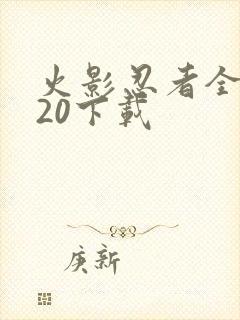 火影忍者全
20下载
庚新